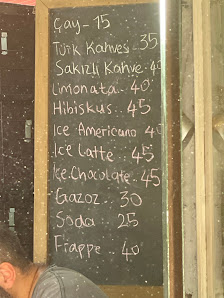 Çay - 15
Türk Kahvesi 35
Sakızlı Kahve - 40
Limonata - 40
Hibiskus - 45
Ice Americano 40
Ice Latte .. 45
Ice Chocolate .. 45
Gazoz .. 30
Soda .. 25
Frappe .. 40